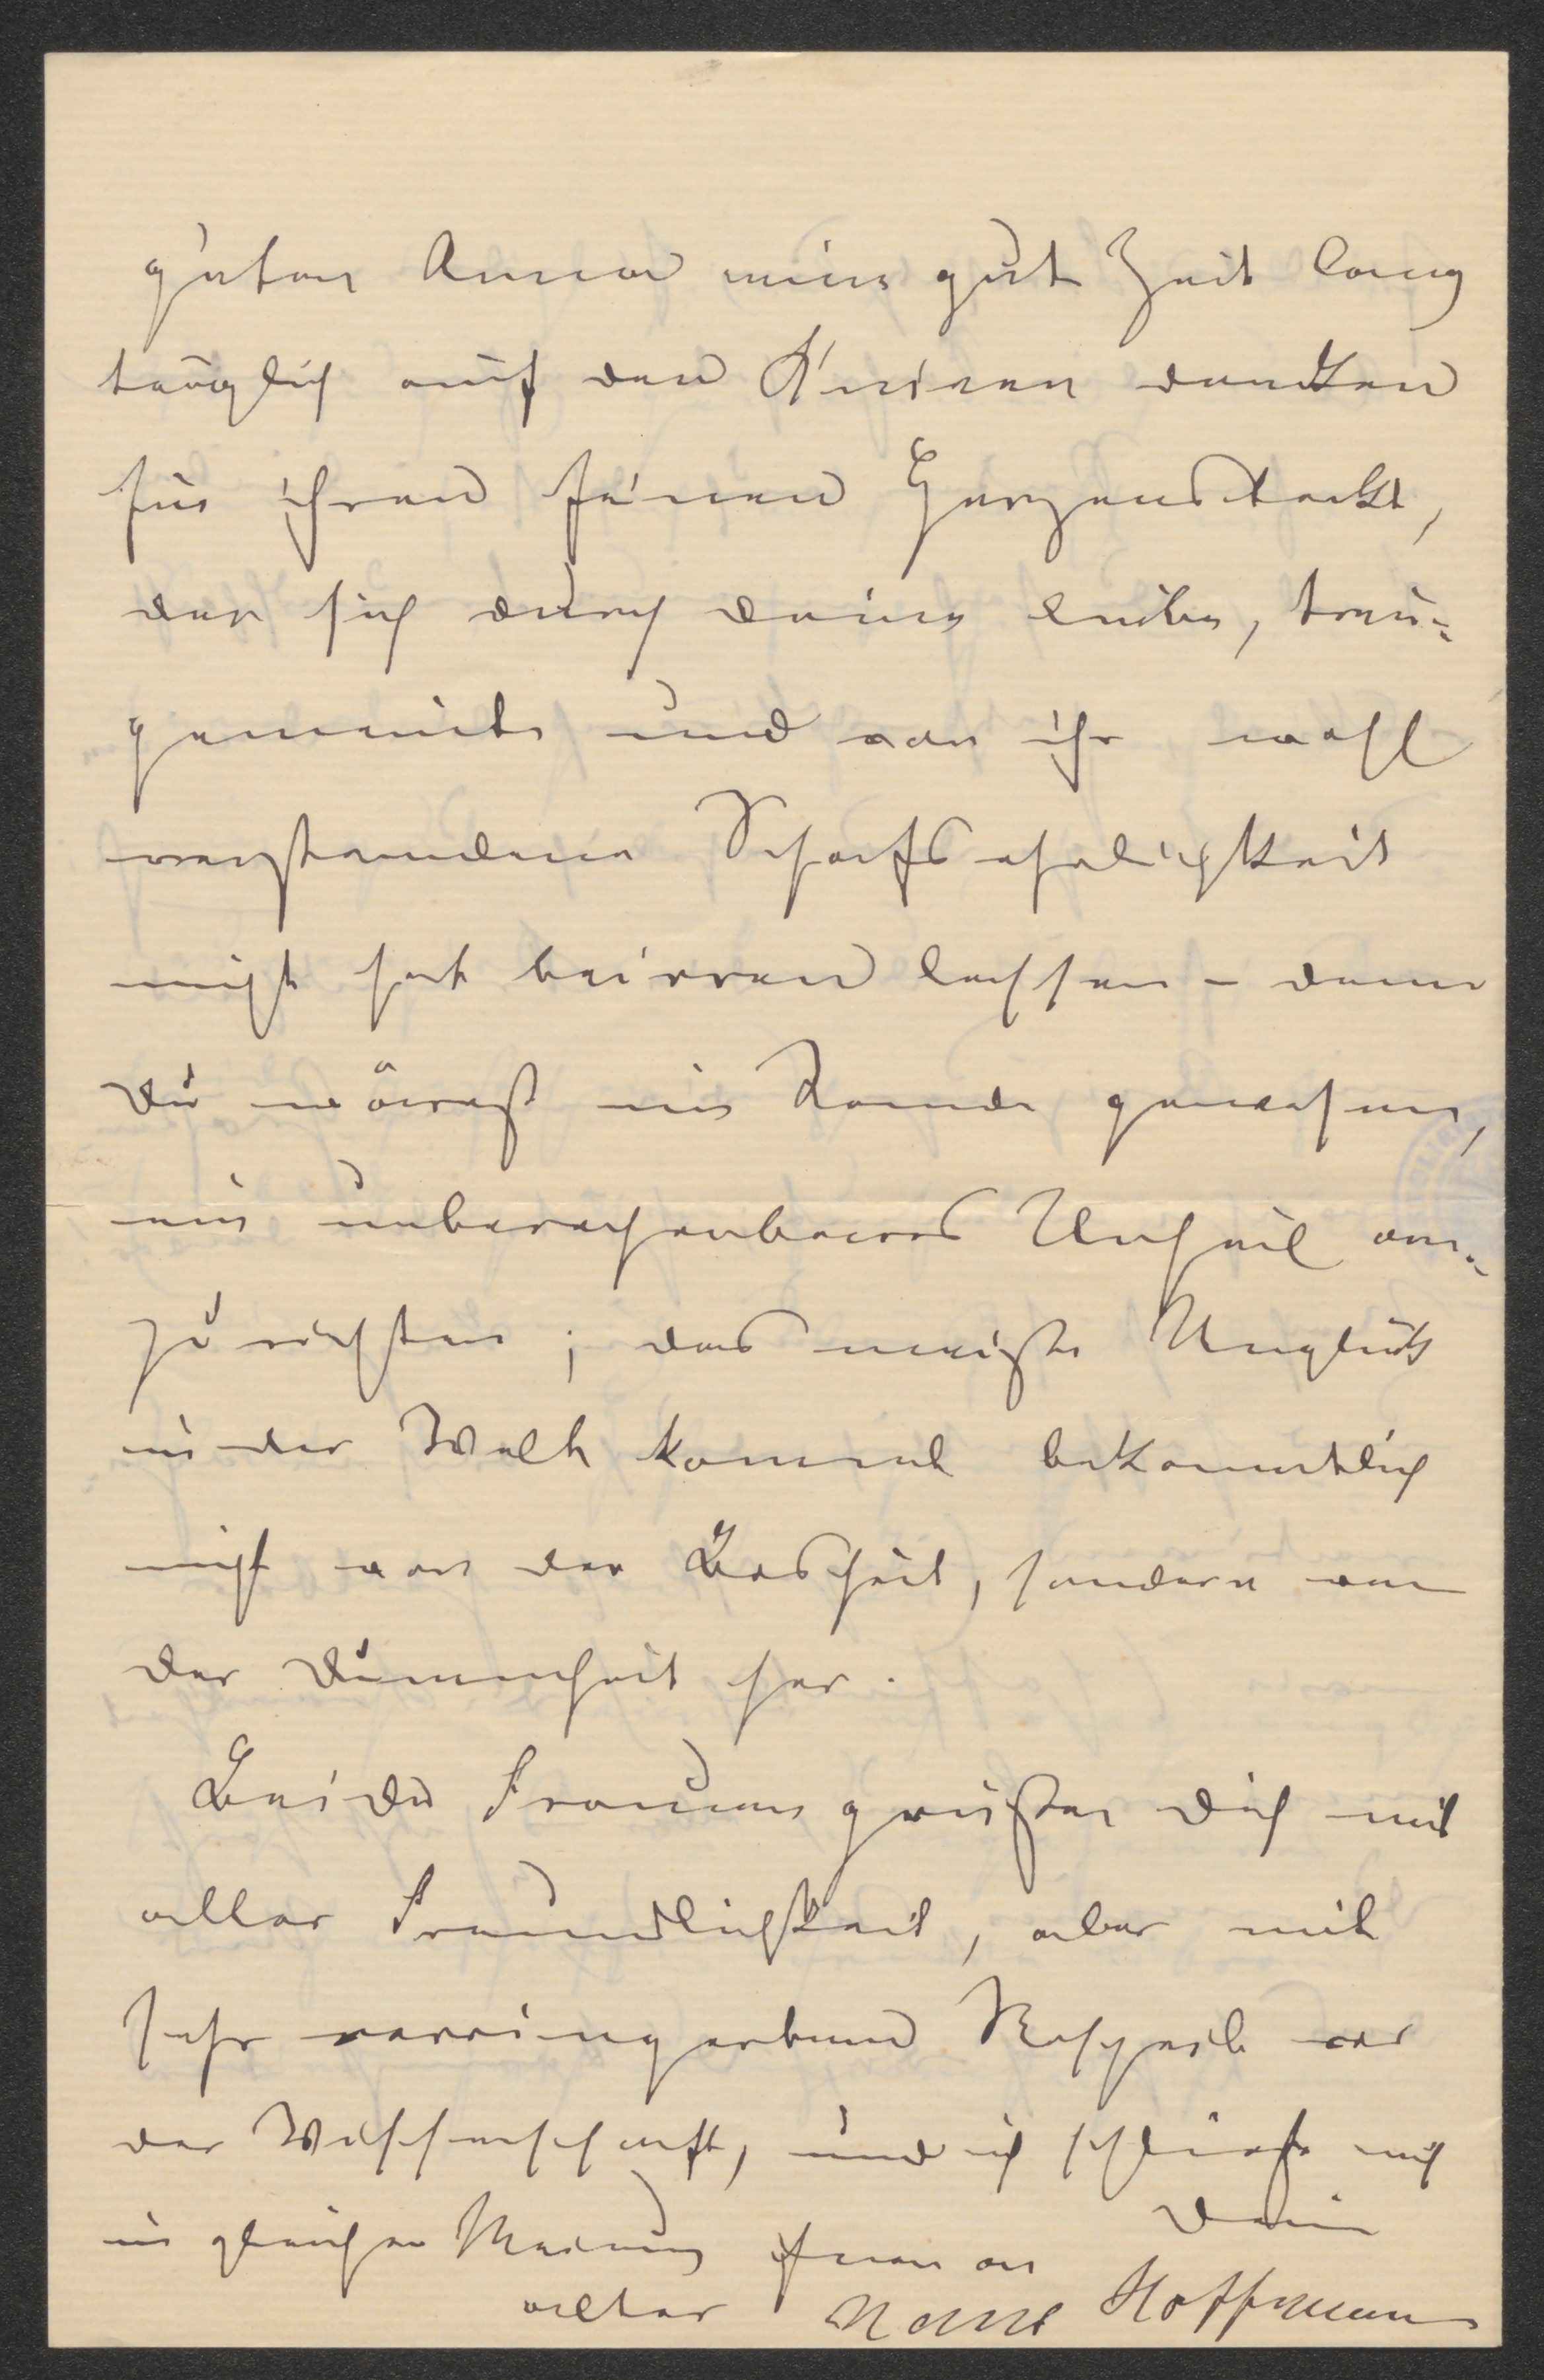 guten Anna eine gute Zeit lang
täglich auf den Knieen danken
für ihren feinen Herzenstakt,
der sich durch deine liebe, treu-
gemeinte und von ihr wohl
verstandene Schafsehrlichkeit
nicht hat beirren lassen – denn
du wärest im Stande gewesen,
ein unberechenbares Unheil an-
zurichten; das meiste Unglück
in der Welt kommt bekanntlich
nicht von der Bosheit, sondern von
der Dummheit her.
Beide Frauen grüßen dich mit
aller Freundlichkeit, aber mit
sehr verringertem Respekt vor
der Wissenschaft, und ich schließe mich
in gleicher Meinung ihnen an
Dein
alter Hans Hoffmann